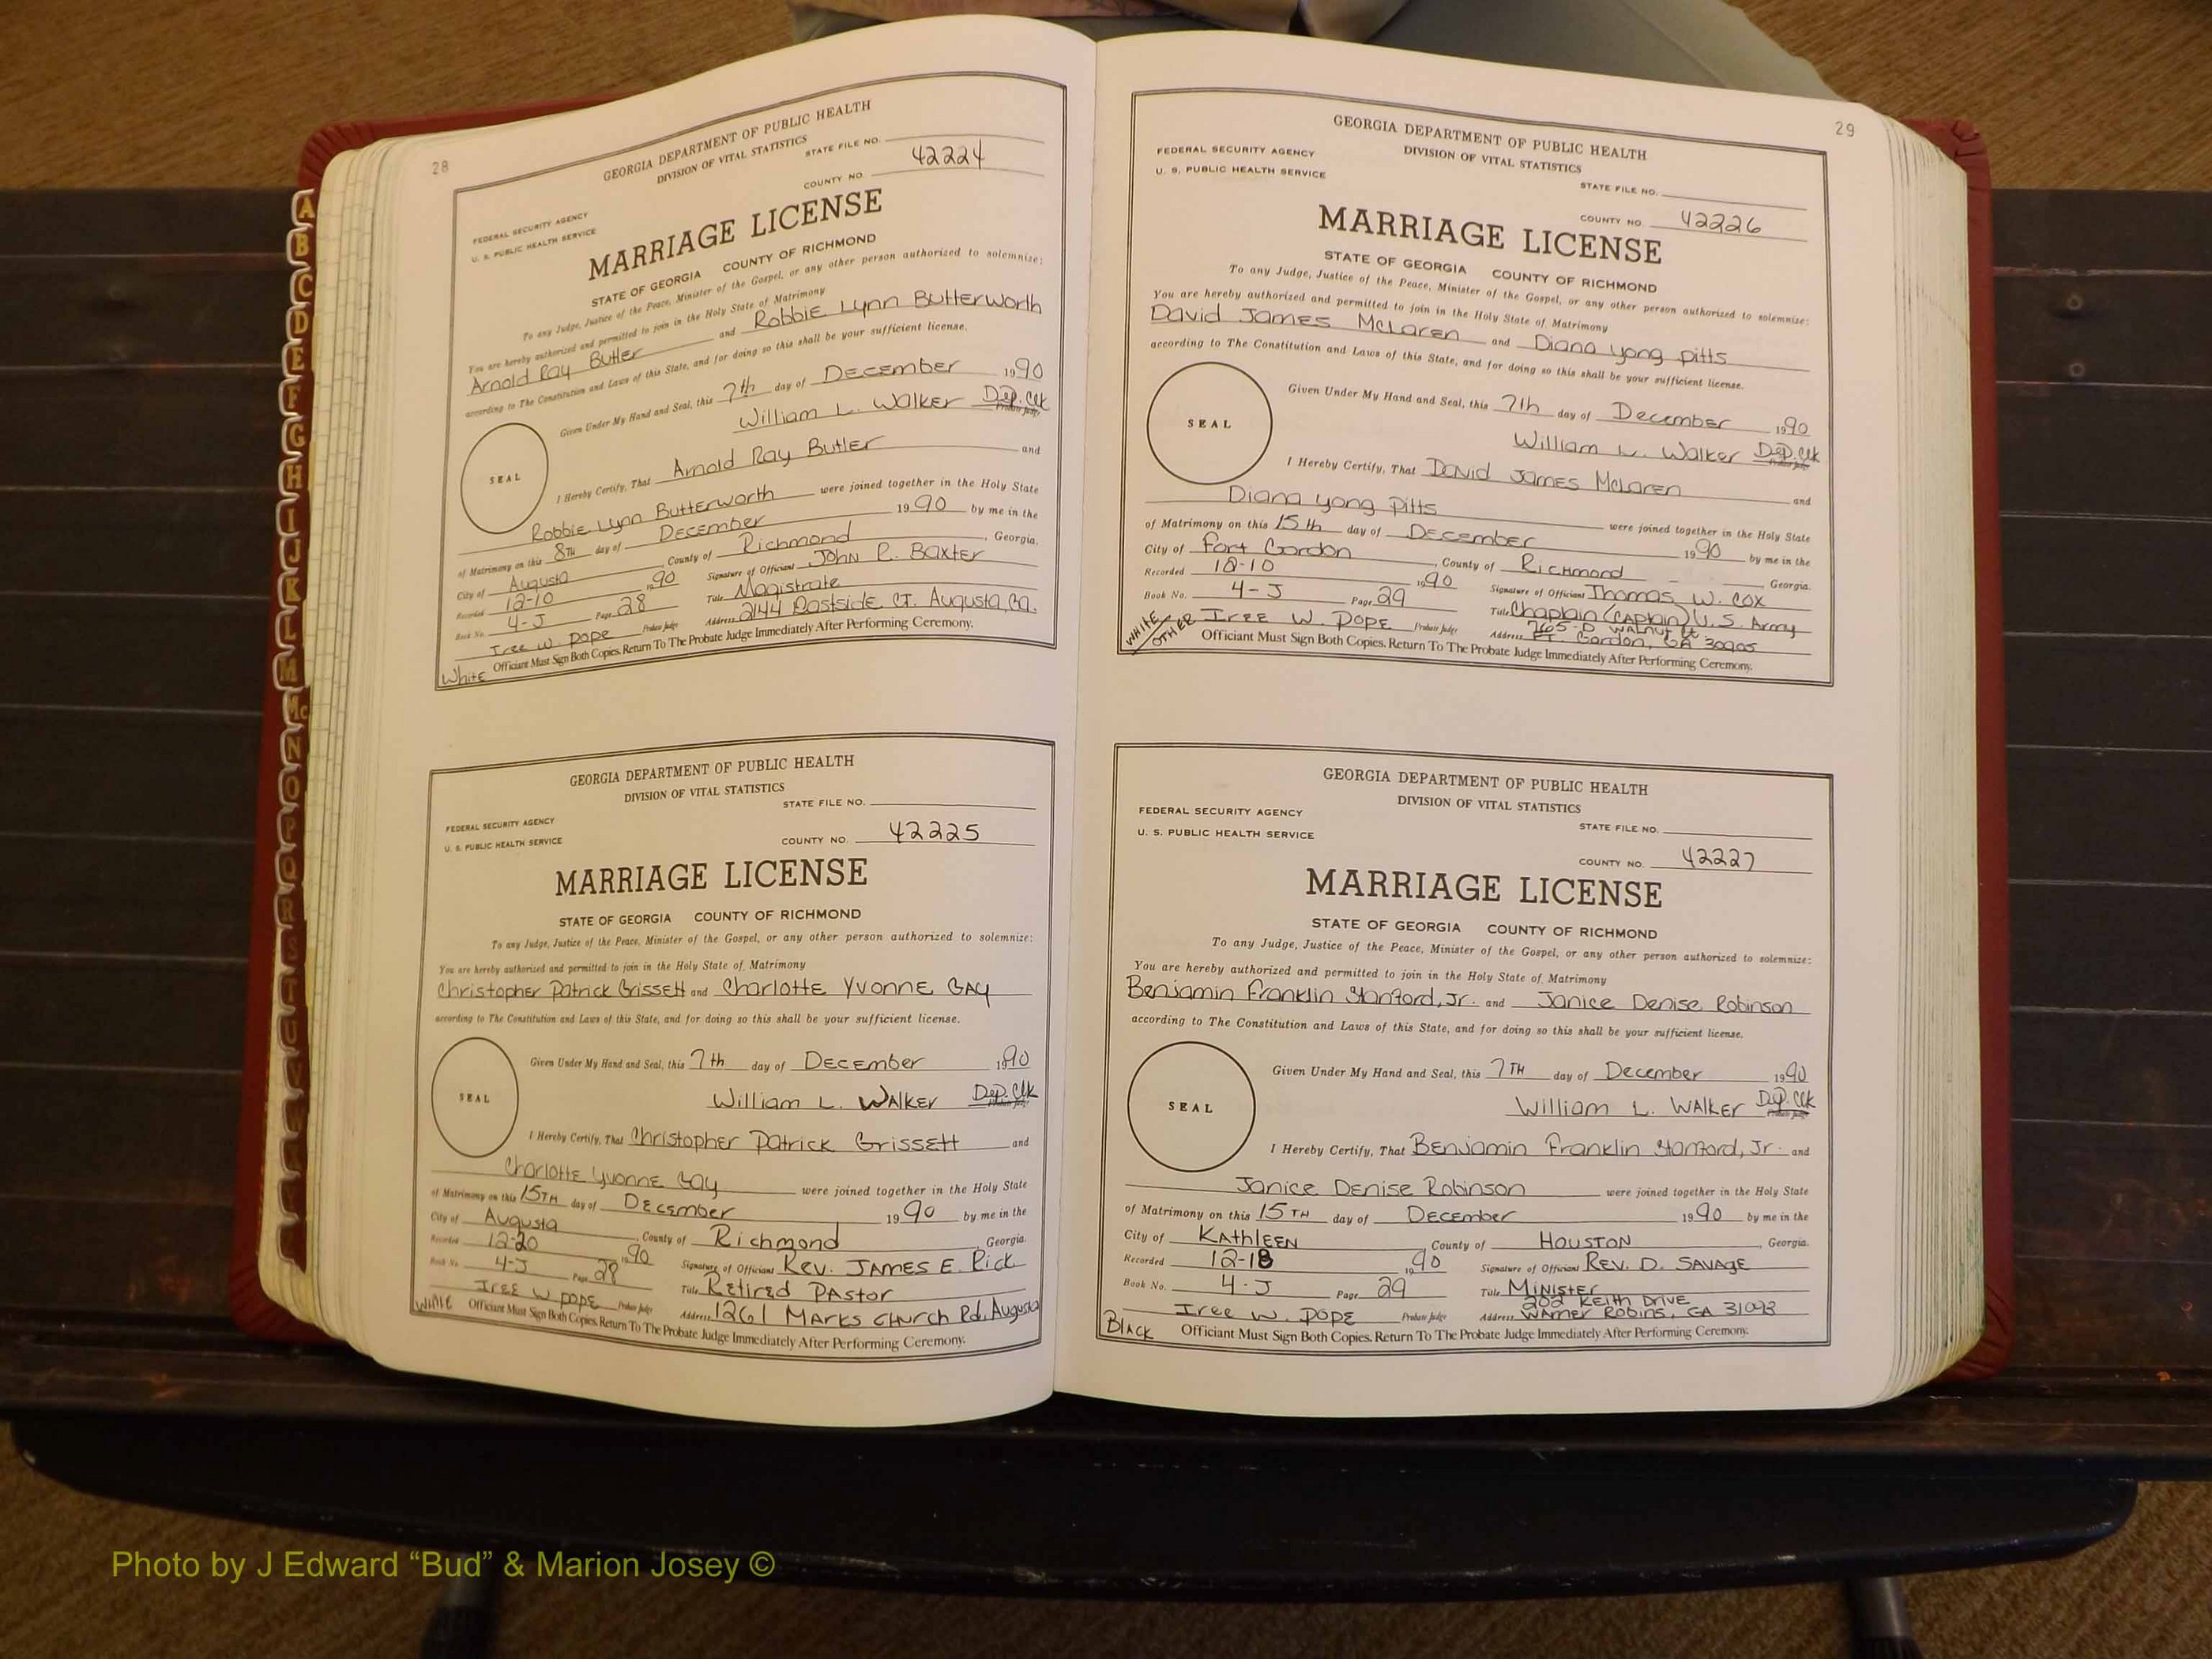 28
GEORGIA DEPARTMENT OF PUBLIC HEALTH
DIVISION OF VITAL STATISTICS
STATE FILE NO.
FEDERAL SECURITY AGENCY
U. S. PUBLIC HEALTH SERVICE
COUNTY NO. 42224
MARRIAGE LICENSE
STATE OF GEORGIA COUNTY OF RICHMOND
To any Judge, Justice of the Peace, Minister of the Gospel, or any other person authorized to solemnize:
You are hereby authorized and permitted to join in the Holy State of Matrimony
Arnold Ray Butler and Robbie Lynn Butterworth
according to The Constitution and Laws of this State, and for doing so this shall be your sufficient license.
Given Under My Hand and Seal, this 7th day of December 1990
William L. Walker Dep. Clk
Probate Judge
SEAL
I Hereby Certify, That Arnold Ray Butler and
Robbie Lynn Butterworth were joined together in the Holy State
of Matrimony on this 8TH day of December 1990 by me in the
City of Augusta, County of Richmond, Georgia.
Recorded 12-10 1990 Signature of Official John R. Baxter
Book No. 4-J Page 28 Title Magistrate
Iree W Pope Probate Judge Address 2144 Eastside Ct. Augusta, Ga.
White Officiant Must Sign Both Copies. Return To The Probate Judge Immediately After Performing Ceremony.
GEORGIA DEPARTMENT OF PUBLIC HEALTH
DIVISION OF VITAL STATISTICS
STATE FILE NO.
FEDERAL SECURITY AGENCY
U. S. PUBLIC HEALTH SERVICE
COUNTY NO. 42225
MARRIAGE LICENSE
STATE OF GEORGIA COUNTY OF RICHMOND
To any Judge, Justice of the Peace, Minister of the Gospel, or any other person authorized to solemnize:
You are hereby authorized and permitted to join in the Holy State of Matrimony
Christopher Patrick Grissett and Charlotte Yvonne Gay
according to The Constitution and Laws of this State, and for doing so this shall be your sufficient license.
Given Under My Hand and Seal, this 7th day of December 1990
William L. Walker Dep. Clk
Probate Judge
SEAL
I Hereby Certify, That Christopher Patrick Grissett and
Charlotte Yvonne Gay were joined together in the Holy State
of Matrimony on this 15TH day of December 1990 by me in the
City of Augusta, County of Richmond, Georgia.
Recorded 12-20 1990 Signature of Official Rev. James E. Rick
Book No. 4-J Page 28 Title Retired Pastor
Iree W Pope Probate Judge Address 1261 Marks Church Rd. Augusta
White Officiant Must Sign Both Copies. Return To The Probate Judge Immediately After Performing Ceremony.
29
GEORGIA DEPARTMENT OF PUBLIC HEALTH
DIVISION OF VITAL STATISTICS
FEDERAL SECURITY AGENCY
U. S. PUBLIC HEALTH SERVICE
STATE FILE NO.
COUNTY NO. 42226
MARRIAGE LICENSE
STATE OF GEORGIA COUNTY OF RICHMOND
To any Judge, Justice of the Peace, Minister of the Gospel, or any other person authorized to solemnize:
You are hereby authorized and permitted to join in the Holy State of Matrimony
David James McLaren and Diana Yong Pitts
according to The Constitution and Laws of this State, and for doing so this shall be your sufficient license.
Given Under My Hand and Seal, this 7th day of December 1990
William L. Walker Dep. Clk
Probate Judge
SEAL
I Hereby Certify, That David James McLaren and
Diana Yong Pitts were joined together in the Holy State
of Matrimony on this 15th day of December 1990 by me in the
City of Fort Gordon, County of Richmond Georgia.
Recorded 12-10 1990 Signature of Official Thomas W. Cox
Book No. 4-J Page 29 Title Chaplain (Captain) U.S. Army
7665-D Walnut Ct.
Iree W. Pope Probate Judge Address Ft. Gordon, GA 30905
White/Other Officiant Must Sign Both Copies. Return To The Probate Judge Immediately After Performing Ceremony.
GEORGIA DEPARTMENT OF PUBLIC HEALTH
DIVISION OF VITAL STATISTICS
FEDERAL SECURITY AGENCY
U. S. PUBLIC HEALTH SERVICE
STATE FILE NO.
COUNTY NO. 42227
MARRIAGE LICENSE
STATE OF GEORGIA COUNTY OF RICHMOND
To any Judge, Justice of the Peace, Minister of the Gospel, or any other person authorized to solemnize:
You are hereby authorized and permitted to join in the Holy State of Matrimony
Benjamin Franklin Stanford, Jr. and Janice Denise Robinson
according to The Constitution and Laws of this State, and for doing so this shall be your sufficient license.
Given Under My Hand and Seal, this 7TH day of December 1990
William L. Walker Dep. Clk
Probate Judge
SEAL
I Hereby Certify, That Benjamin Franklin Stanford, Jr. and
Janice Denise Robinson were joined together in the Holy State
of Matrimony on this 15TH day of December 1990 by me in the
City of Kathleen County of Houston, Georgia.
Recorded 12-18 1990 Signature of Official Rev. D. Savage
Book No. 4-J Page 29 Title Minister
202 Keith Drive
Iree W. Pope Probate Judge Address Warner Robins, GA 31093
Black Officiant Must Sign Both Copies. Return To The Probate Judge Immediately After Performing Ceremony.
A
B
C
D
E
F
G
H
I
J
K
L
M
Mc
N
O
P
Q
R
S
T
U
V
Photo by J Edward “Bud” & Marion Josey ©